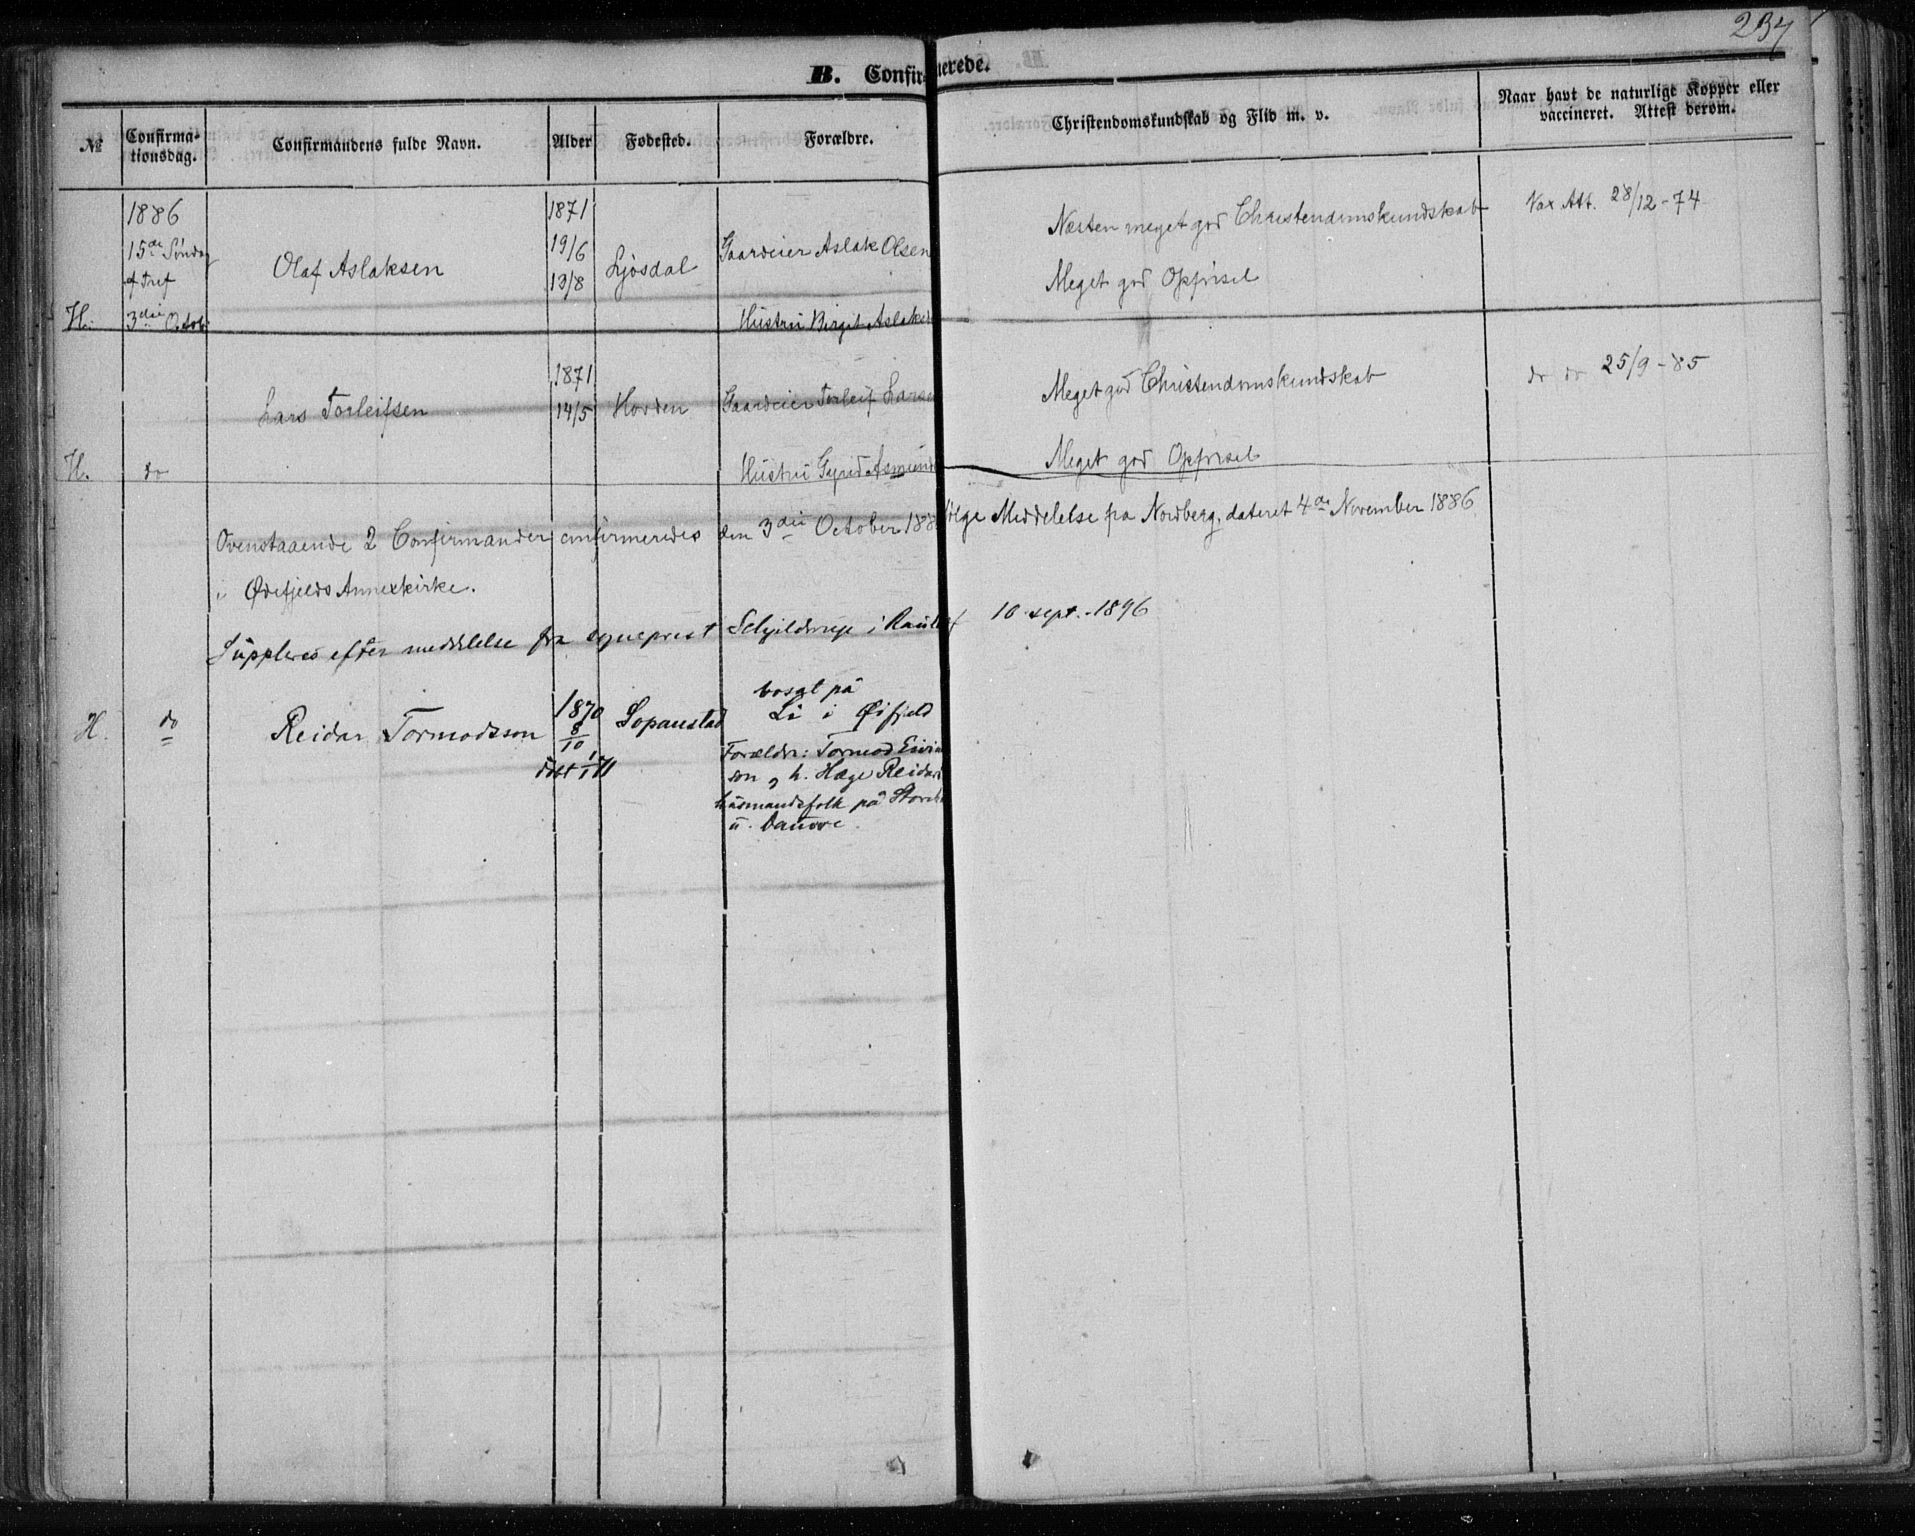 237
B. Confirmerede.
№
Confirma-
tionsdag.
Confirmandens fulde Navn.
Alder
Fødested.
Forældre.
Christendomskundskab og Flid m. v.
Naar havt de naturlige Kopper eller
vaccineret. Attest derom.
1886
15de Søndag
ef Tref
H.
3die Octob
Olaf Aslaksen
1871
19/6
13/8
Ljosdal
Gaardeier Aslak Olsen
Hustru Birgit Aslaks
Næsten meget god Christendomskundskab
Meget god Opførsel
Vax Att. 28/12-74
H.
do
Lars Torleifsen
1871
14/5
Hovden
Gaardeier Torleif Larse
Hustru Gyrid Asmund
Meget god Christendomskundskab
Meget god Opførsel
do do 25/9-85
Ovenstaaende 2 Confirmander confirmeredes den 3die October 188 følge Meddelelse fra Nordberg, dateret 4de November 1886
i Øifjelds Annexkirke.
Suppleres efter meddelelse fra sogneprest Schjelderup i Rauland 10 sept. 1896
H.
do
Reidar Tormodsson
1870
8/10
døbt 1/1 71
Sopanstad
bosat på
Li i Øifjeld
Forældre: Tormod Eivin
son og h. Hæge Reidars
husmandsfolk på